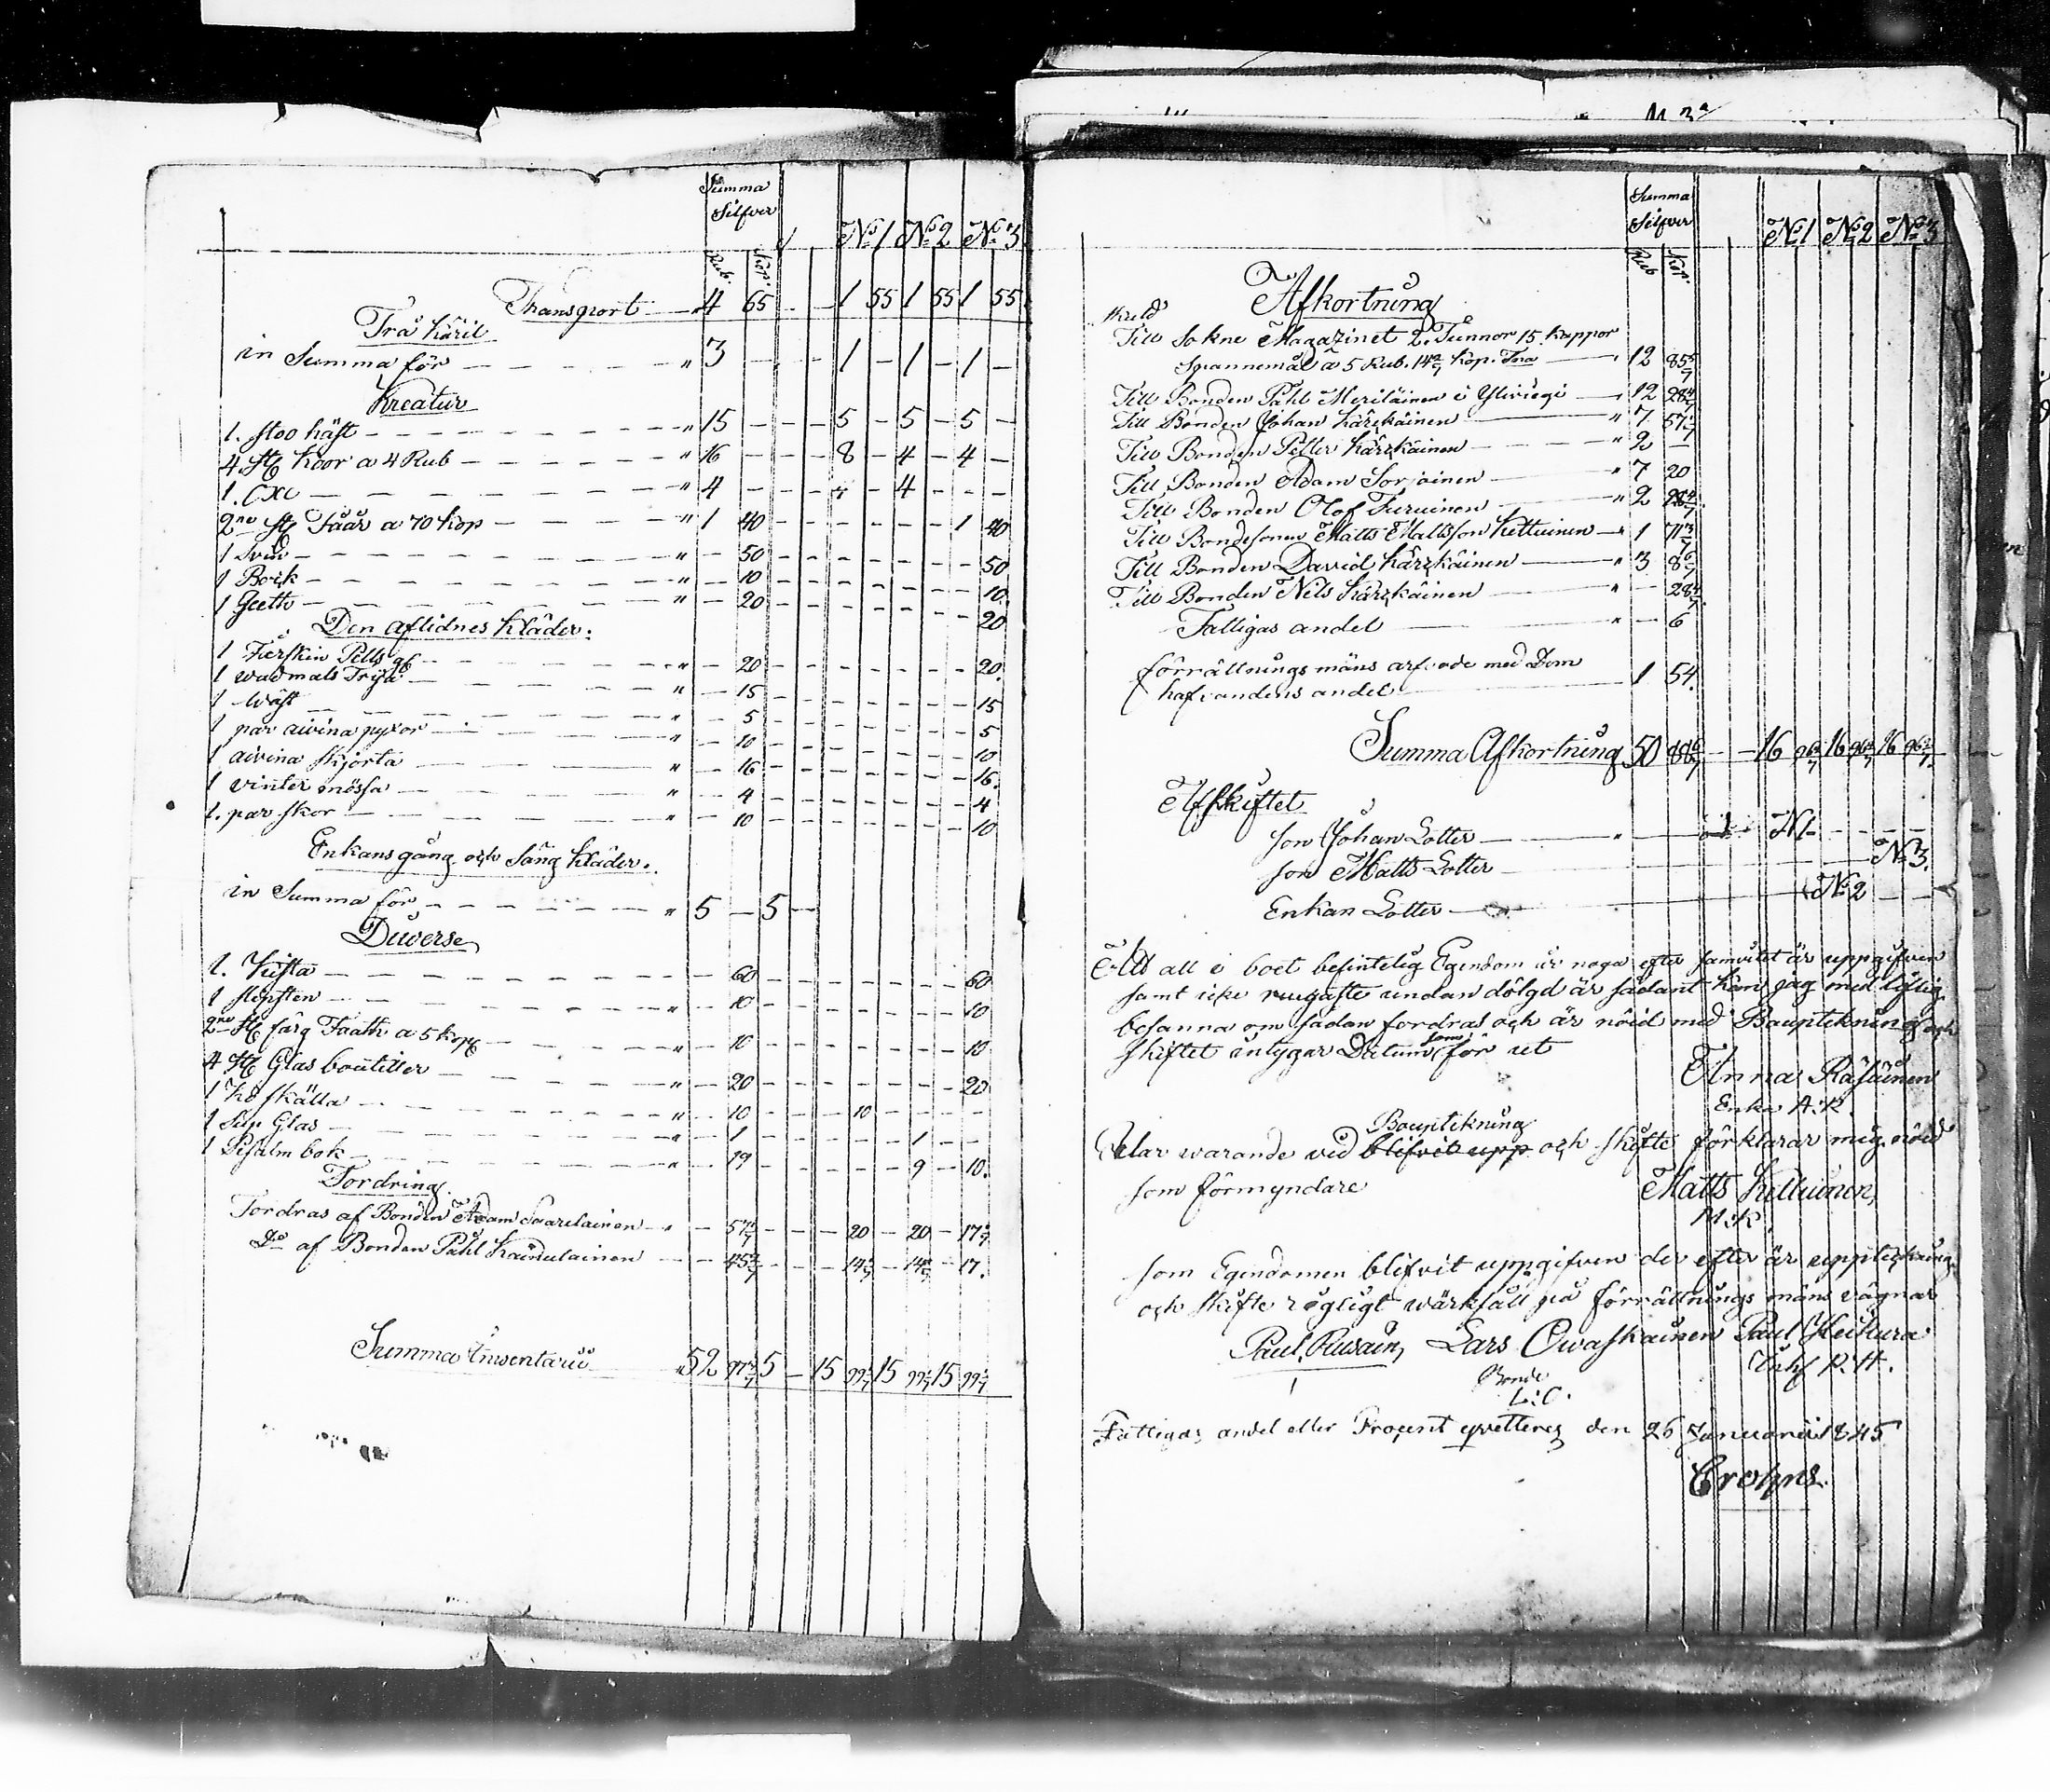 Summa
Silfver
No 1 No 2 No 3
Rub. Kop.
Transport 4 65 1 55 1 55 1 55
Trä käril
in Summa för 3 1 1 1
Kreatur
1. stoo häst 15 5 5 5
4 st koor a 4 Rub 16 8 4 4
1. Oxe 4 4
2ne st Fåår a 70 kop 1 40 1 40
1 Svin 50 50
1 Bock 10 10
1 Geeth 20 20
Den aflidnes kläder.
1 Fårskin Pells 20 20
1 wadmals Tröja 15 15
1 Wäst 5 5
1 par aivina pyxor 10 10
1 aivina skjorta 16 16
1 vinter mössa 4 4
1. par skor 10 10
Enkans gång och säng kläder.
in Summa för 5 5
Diverse
1. Kista 60 60
1 slipsten 10 10
2ne st färg Faath a 5 kop 10 10
4 st Glas boutiller 20 20
1 Ko skälla 10 10
1 Sup Glas 1 1
1 Psalm bok 19 9 10
Fordring
Fordras af Bonden Adam Saarelainen 57 1/7 20 20 17 1/7
Do af Bonden Påhl 45 5/7 14 14 17
Summa Inventarii 52 97 5 15 99 15 99 15 99
Summa
Silfver
No 1 No 2 No 3
Rub Kop.
Afkortning
skuld
Till Sokne Magazinet 2. Tunnor 15 kappor
Spannemål a 5 Rub. 14 2/7 kop. Tna 12 85 5/7
Till Bonden Påhl Meriläinen i Ylivieyi 12 28 4/7
Till Bonden Johan Kärkäinen 7 57 1/7
Till Bonden Petter Kärkäinen 2
Till Bonden Adam Sorjoinen 7 20
Till Bonden Olof Turuinen 2 28 4/7
Till Bondesonen Matts Mattsson Kettuinen 1 71 3/7
Till Bonden David Kärkäinen 3 8 6/7
Till Bonden Nils Kärkäinen 28 4/7
Fattigas andel 6
förrättnings mäns arfvode med Dom
hafvandens andel 1 54.
Summa Afkortning 50 88 6/7 16 96 2/7 16 96 2/7 16 96 2/7
Afskiftet
son Johan Lotter No 1
son Matts Lotter No 3.
Enkan Lotter No 2
At all i boet befintelig Egendom är noga efter samvetet är uppgifven
samt icke ringaste undan dölgd är sådant kan jag med liflig
besanna om sådan fordras och är nöid med Boupteknings och
skiftet intygar Datum som för ut
Anna Räsäinen
Enka A.R.
Bouptekning
Delar warande vid blifvit upp och skifte förklarar mig nöid
som förmyndare
Matts Kettuinen,
M:K.
som Egendomen blifvit uppgifven der efter är uppteckning
och skifte rigtigt wärkstält på förrättnings mäns vägnar
Paul. Lars Owaskainen Paul Heikura
Bonde P:H.
L:O.
Fattigas andel eller Procent qvitteras den 26 Januarii 1845
Crohns.